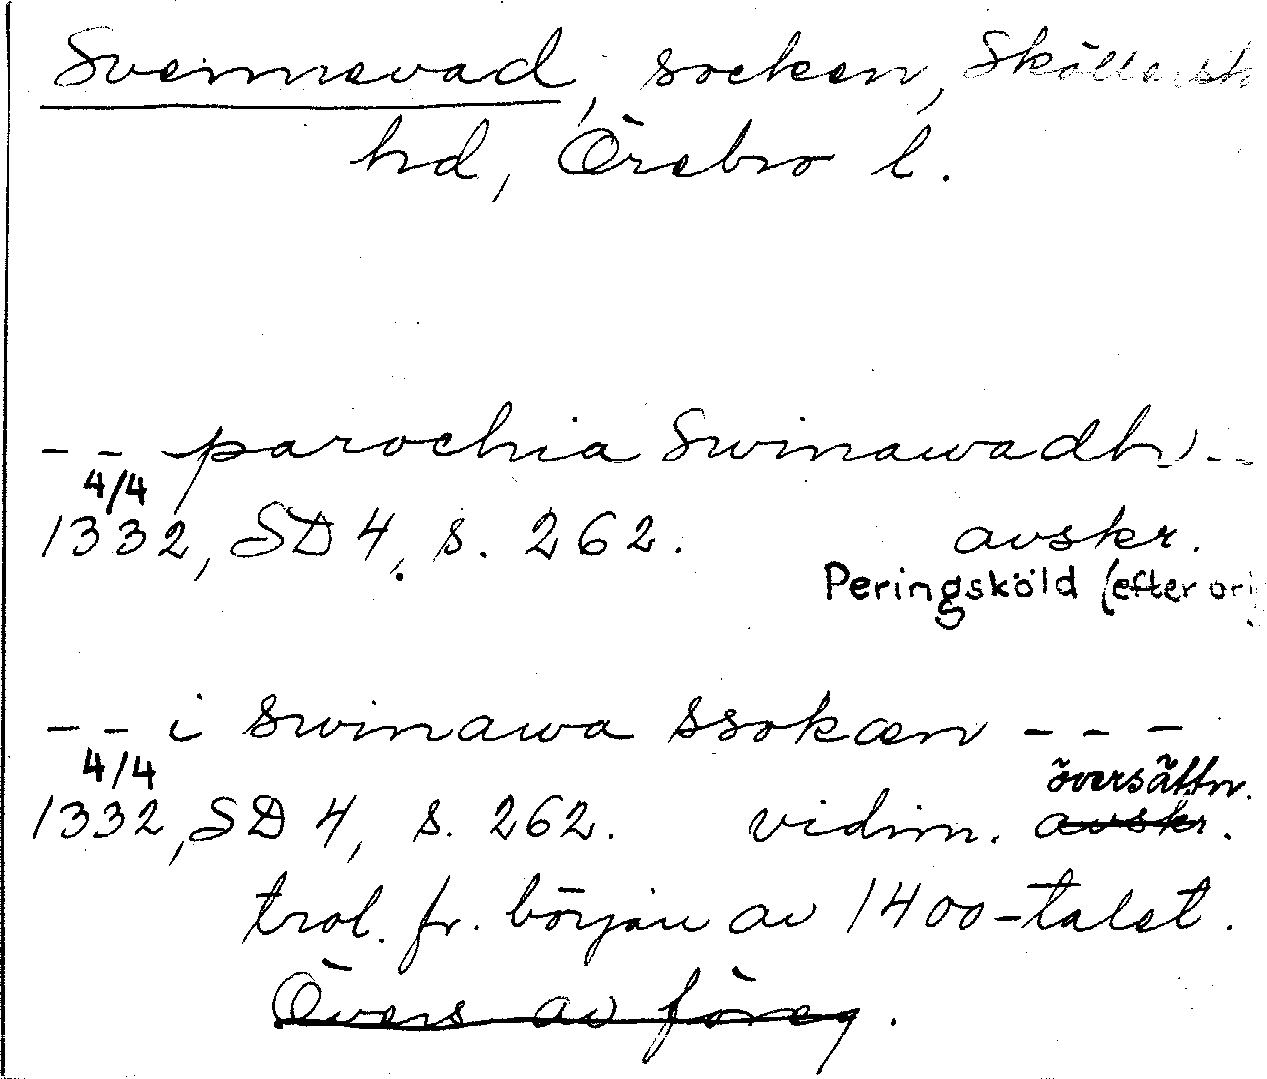 Svennevad, socken, Sköllersk
hd, Örebro l.
-- parochia Swinawadh --
4/4
1332, SD 4, s. 262. avskr.
Peringsköld (efter ori
-- i swinawa ssokæn ---
4/4 översättn.
1332, SD 4, s. 262. vidim. avskr.
trol. fr. början av 1400-talet.
Övers av föreg.